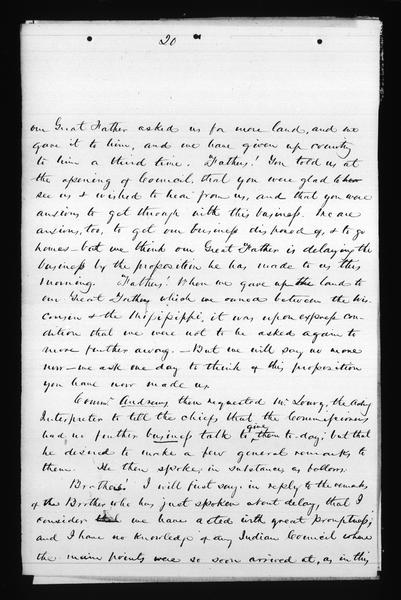 20
our Great Father asked us for more land, and we
gave it to him, and we have given up country
to him a third time. Father! You told us at
the opening of Council, that you were glad to
see us & wished to hear from us, and that you were
anxious to get through with this business. We are
anxious, too, to get our business disposed of, & to go
home – but we think our Great Father is delaying the
business by the proposition he has made to us this
morning. Father! When we gave up the land to
our Great Father which we owned between the Wis-
consin & the Mississippi, it was upon express con-
dition that we were not to be asked again to
move further away. – But we will say no more
now – we ask one day to think of this proposition
you have now made us.
Commr. Andrews then requested Mr Lowry, the Acting
Interpreter to tell the chiefs that the Commissioners
had no further business talk to give them to-day; but that
he desired to make a few general remarks to
them. He then spoke, in substance, as follows:
Brothers! I will first say, in reply to the remarks
of the Brother who has just spoken about delay, that I
consider we have acted with great promptness;
and I have no knowledge of any Indian Council where
the main points were so soon arrived at, as in this